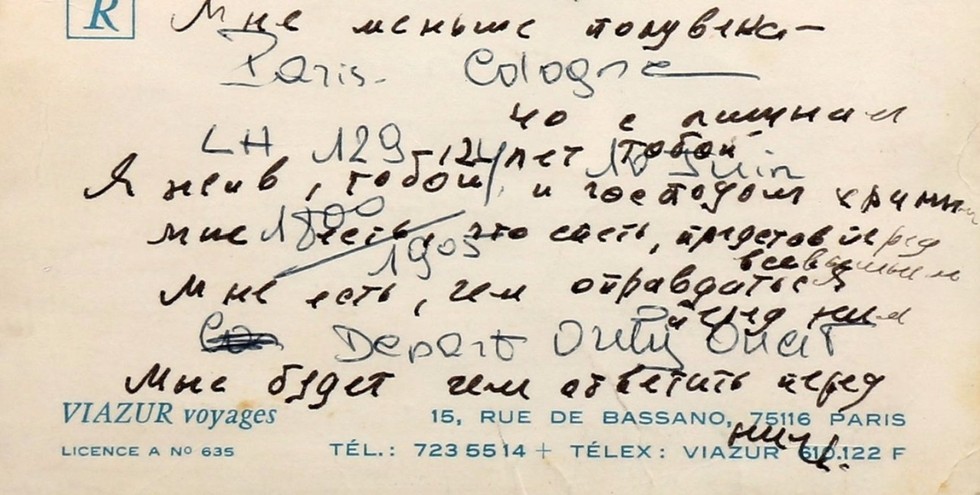 R
Мне меньше полувека —
Paris - Cologne
40 с лишним
LH 129 - 124 / 10 Juin
12 лет тобой
Я жив, тобой и господом храним
1800 / 1905
Мне есть, что спеть, представ перед
всевышним
Мне есть, чем оправдаться
перед ним
Depart Orly Ouest
Мне будет чем ответить перед
ним.
VIAZUR voyages 15, RUE DE BASSANO, 75116 PARIS
LICENCE A Nº 635 TÉL.: 723 55 14 + TÉLEX : VIAZUR 610.122 F